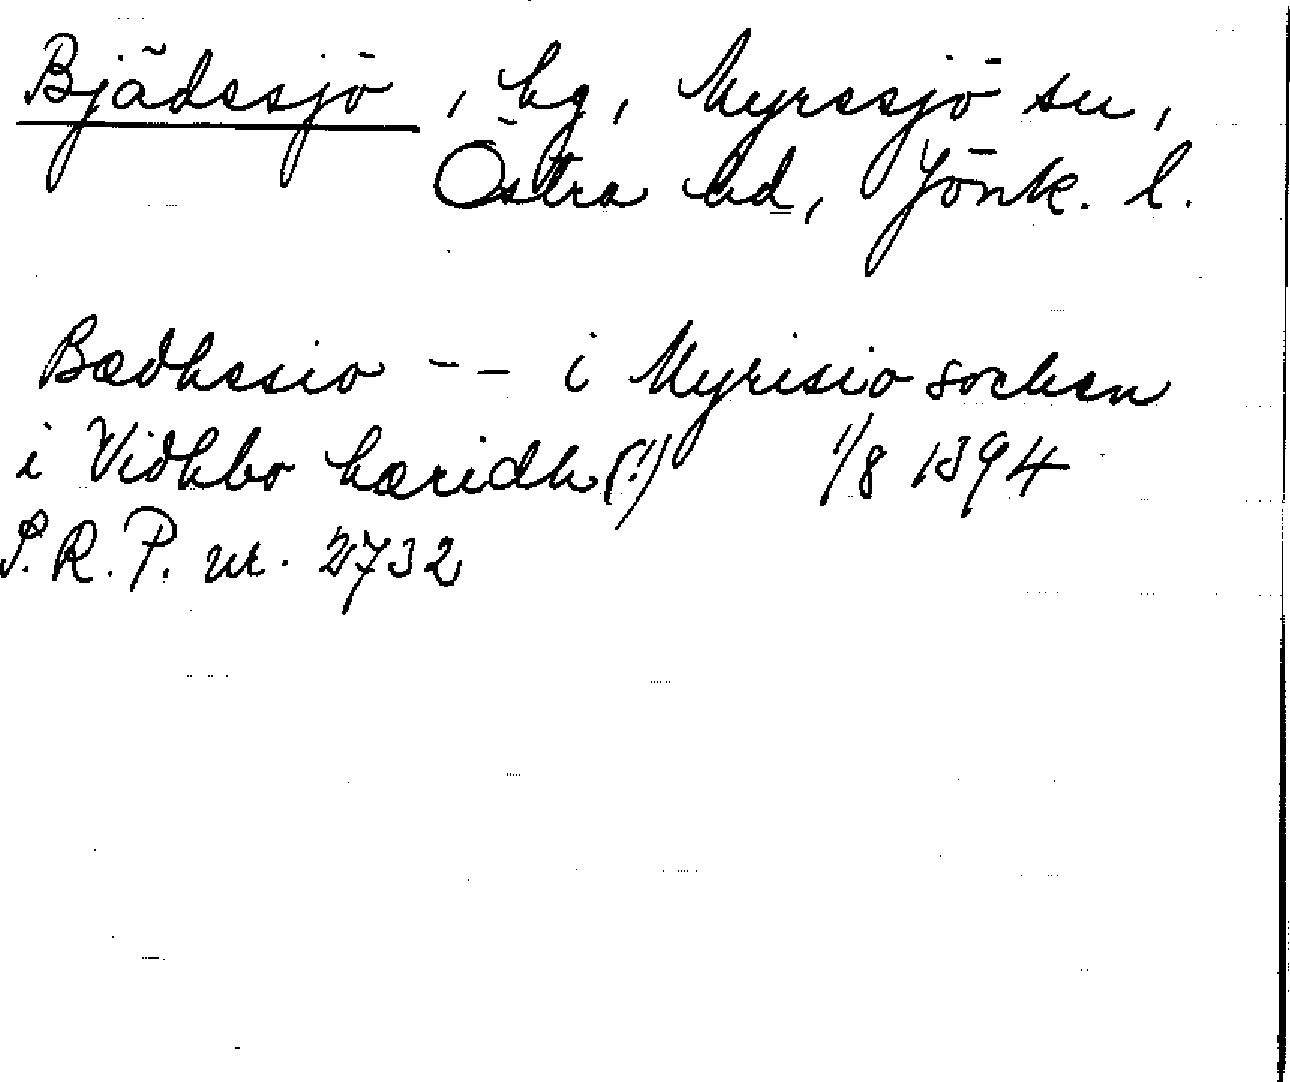 Bjädssjö, hg, Myrssjö sn,
Östra hd, Jönk. l.
Bædhssio -- i Myrisio sochen
i Vidhbo hæridh (!) 1/8 1394
S.R.P. nr. 2732